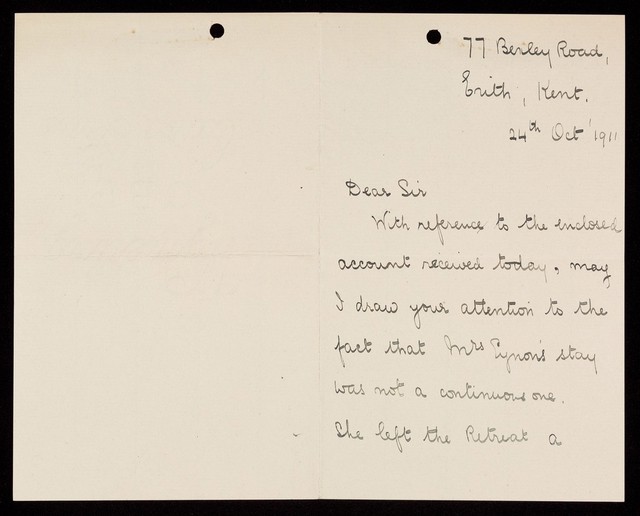 77 Bexley Road,
Erith, Kent.
24th Oct 1911
Dear Sir
With reference to the enclosed
account received today, may
I draw your attention to the
fact that Mrs Eynon's stay
was not a continuous one.
She left the Retreat a